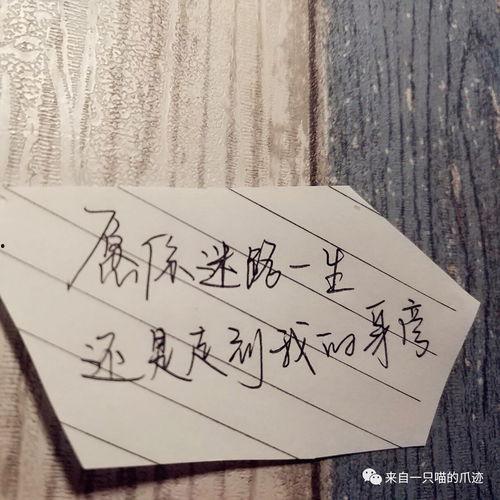 愿你迷路一生
还是走到我的身旁
来自一只喵的爪迹